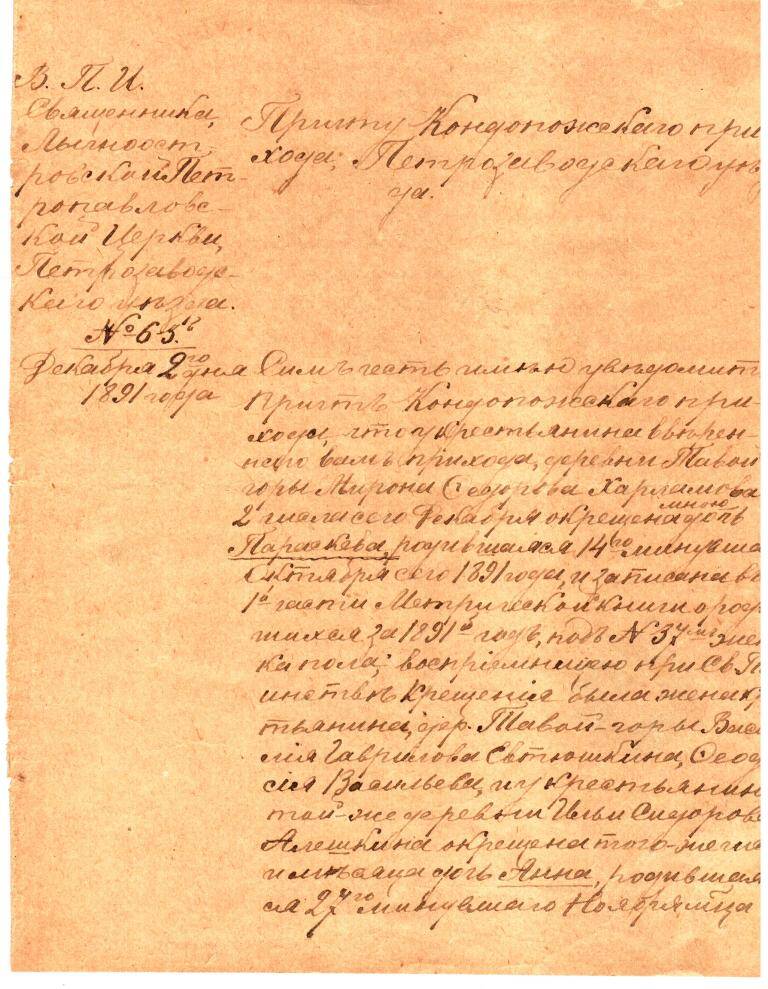 В. П. И.
Священника,
Лычноост-
ровской Пет-
ропавловс-
кой Церкви,
Петрозаводс-
каго уѣзда.
№ 65.
Декабря 2го дня
1891 года
Причту Кондопожскаго при
хода, Петрозаводскаго уѣз
да.
Симъ честь имѣю увѣдомить
Причтъ Кондопожскаго при-
хода, что у крестьянина ввѣрен-
наго вамъ прихода, деревни Тавой
горы Мирона Сидорова Харламова
2 числа сего Декабря окрещена мною дочь
Параскева, родившаяся 14го минувша
Октября сего 1891 года, и записана въ
1й части Метрической книги о род
шихся за 1891й годъ, подъ № 37мъ жен
ка пола; воспріемницею при Св. Т
инствѣ Крещенія была жена кр
тьянина, дер. Тавой-горы Васи
лія Гаврилова Евтюшкина, Ѳеод
сія Васильева, и у крестьянин
той-же деревни Ильи Сидорова
Алешкина окрещена того-же чис
и мѣсяца дочь Анна, родившая
ся 27го минувшаго Ноября мѣца